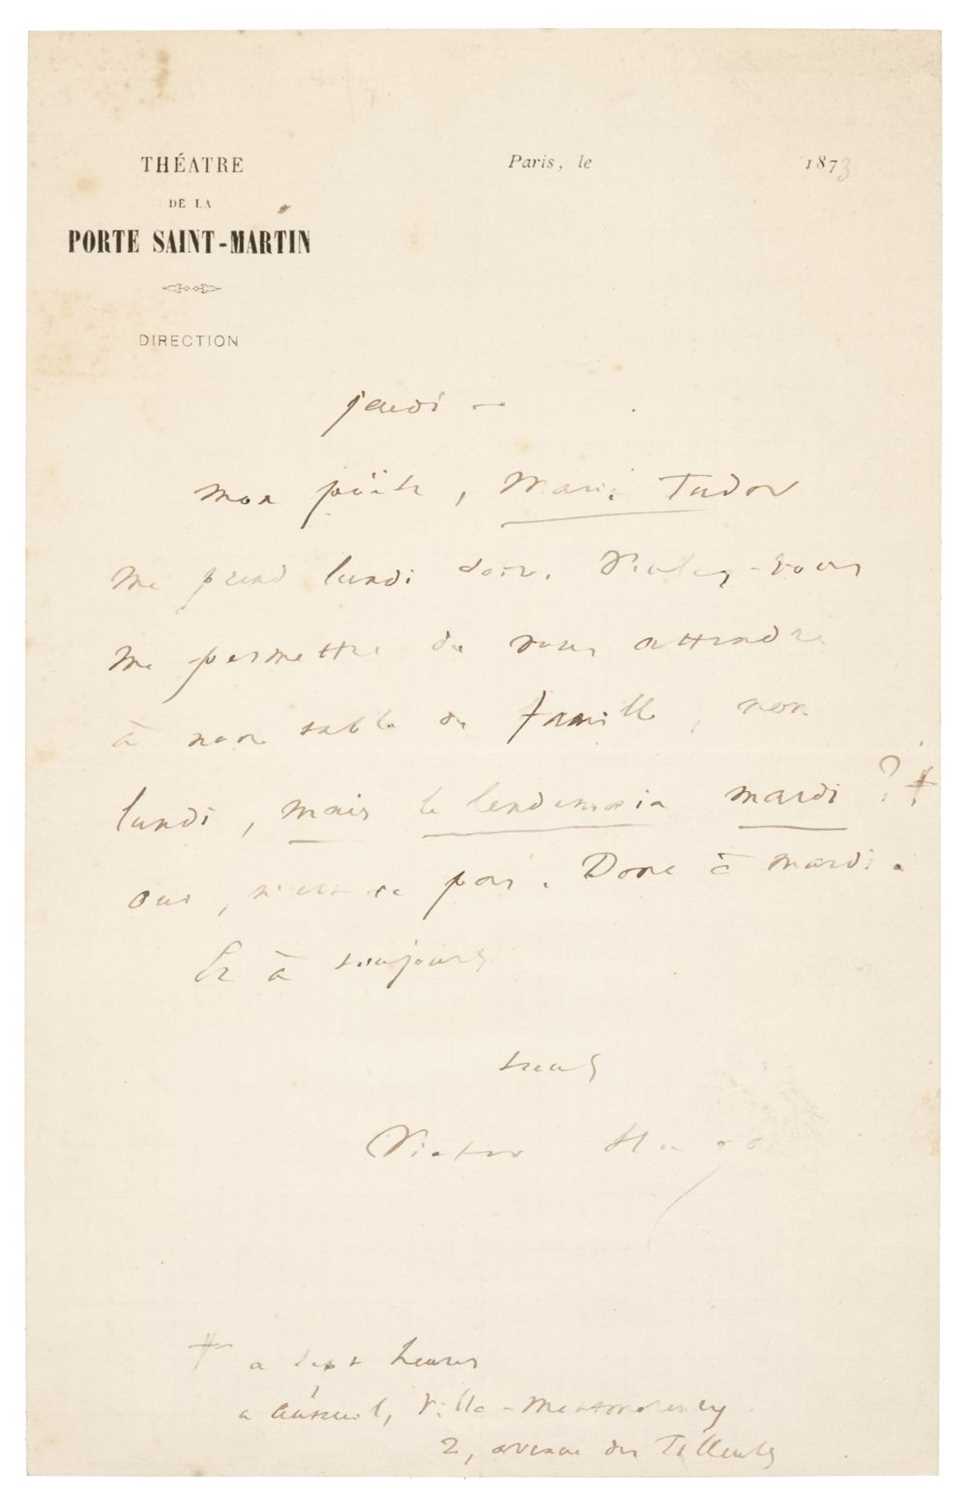 THÉATRE
DE LA
PORTE SAINT-MARTIN
DIRECTION
Paris, le 1873
jeudi —
mon poëte, Marie Tudor
me prend lundi soir. Voulez-vous
me permettre de vous attendre
à mon table de famille, non
lundi, mais le lendemain mardi ? ‡
oui, n'est-ce pas. Donc à mardi.
Et à toujours
tuus
Victor Hugo
‡ a sept heures
a Auteuil, Villa-Montmorency
2, avenue des Tilleuls